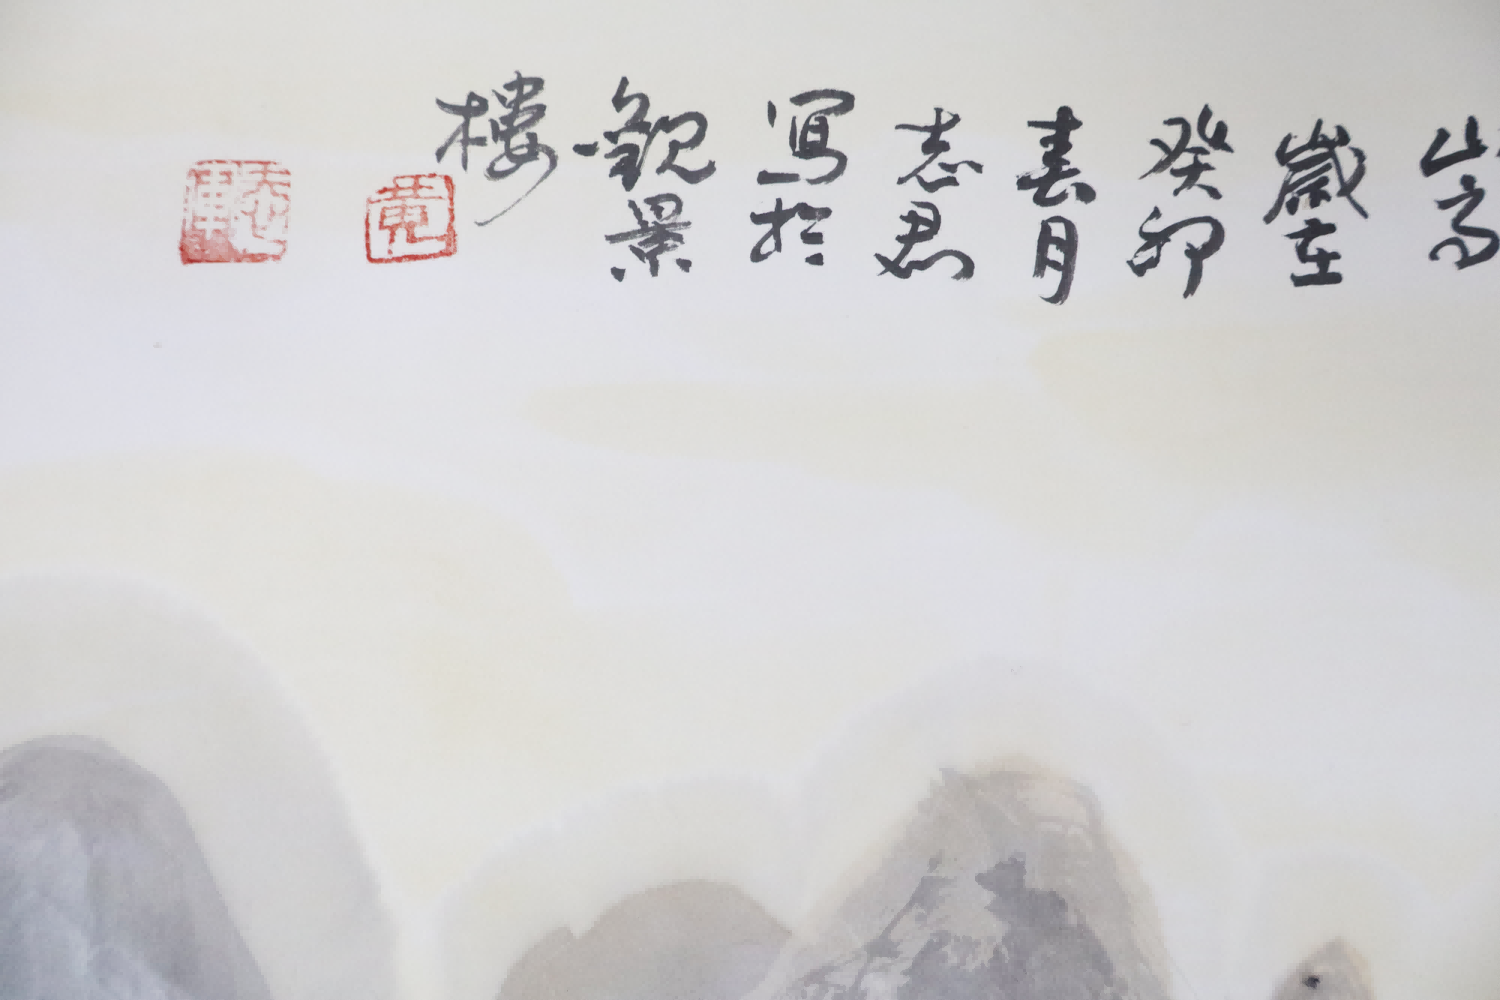 山高
歲在
癸卯
春月
志君
寫於
觀景
樓
黄
志軍